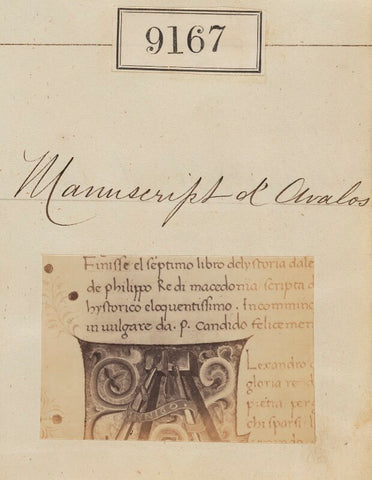 9167
Manuscript d'Avalos
Finisse el septimo libro dely storia dale
de philippo Re di macedonia scripta d
hystorico eloquentissimo. Incominc
in vulgare da. p. candido felicemen
Lexandro
gloria re d
pietra per
chi sparsi